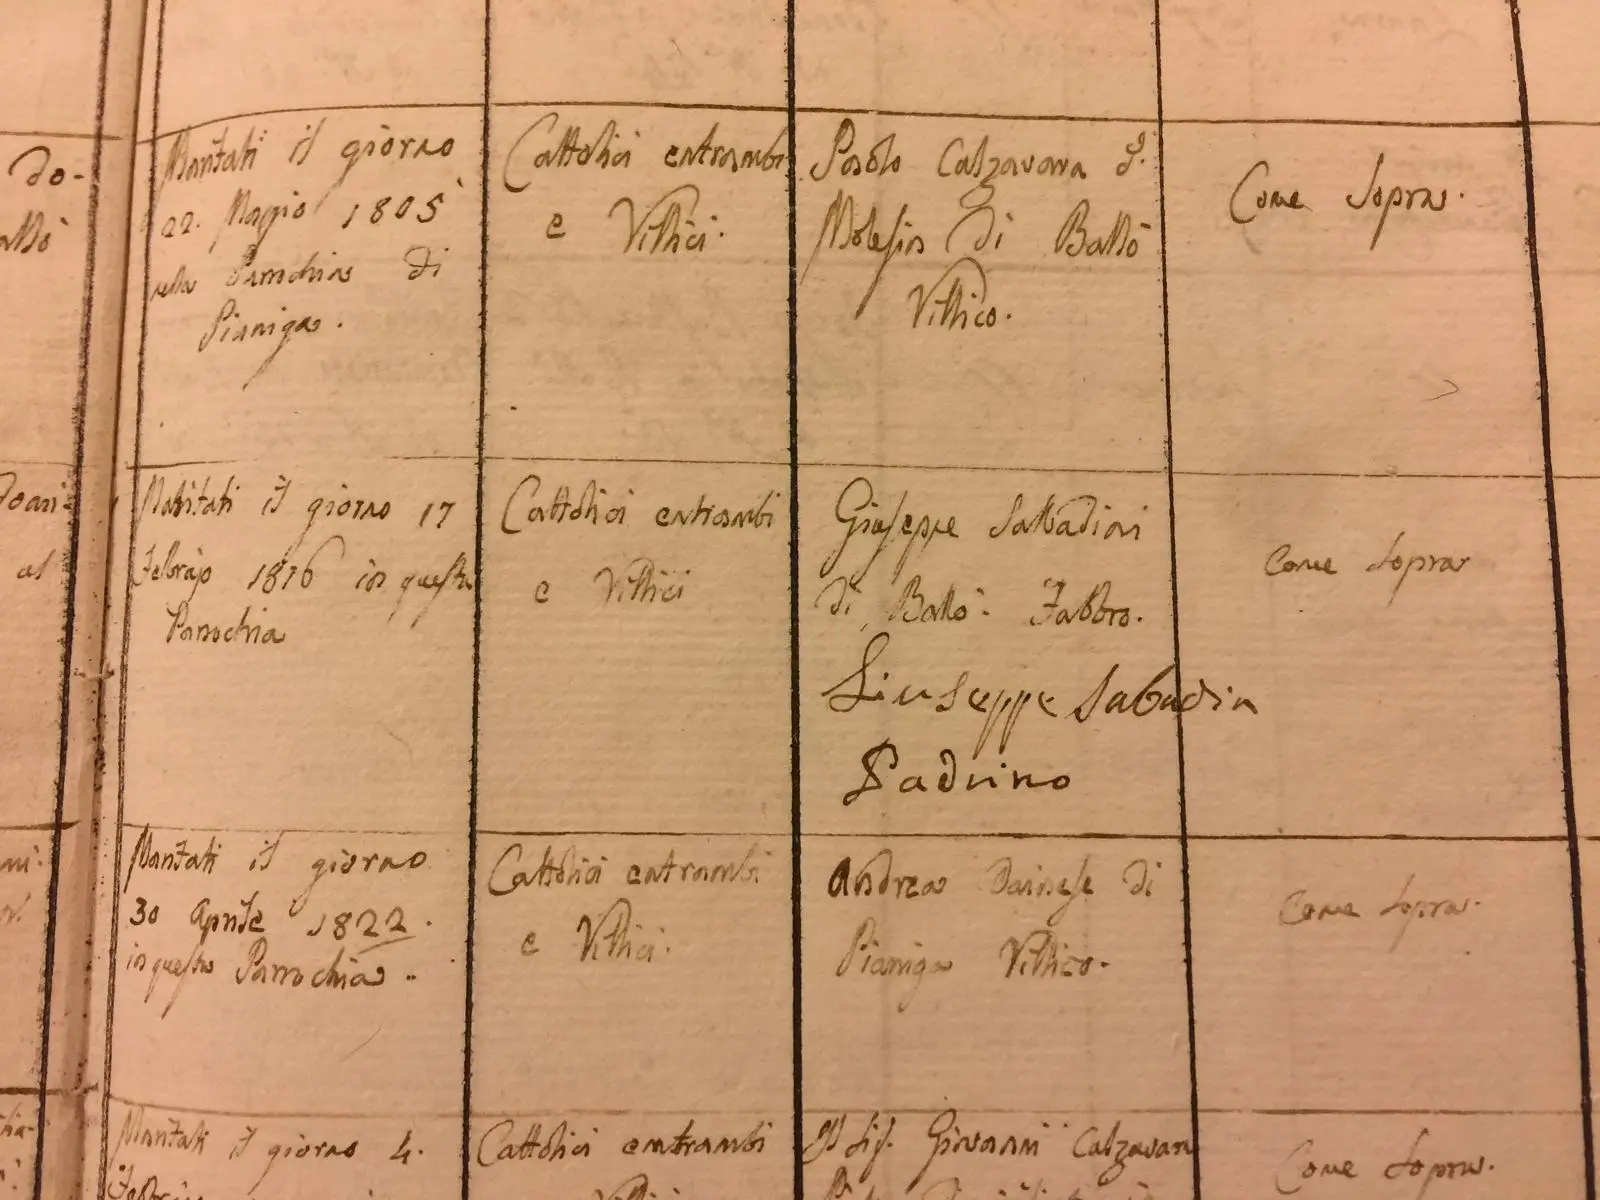 do-
Maritati il giorno
22. Magio 1805
nella Parochia di
Pianiga.
Cattolici entrambi
e Villici.
Paolo Calzavara d.
Molesin di Ballò
Villico.
Come sopra.
Maritati il giorno 17
Febrajo 1816 in questa
Parochia
Cattolici entrambi
e Villici
Giuseppe Sabbadini
di Ballò. Fabbro.
Giuseppe Sabadin
Padrino
Come sopra
al
Maritati il giorno
30 Aprile 1822.
in questa Parrochia..
Cattolici entrambi
e Villici.
Andrea Dainese di
Pianiga Villico.
Come sopra.
Maritati il giorno 4.
Cattolici entrambi
Il Sig. Giovanni Calzavara
Come sopra.